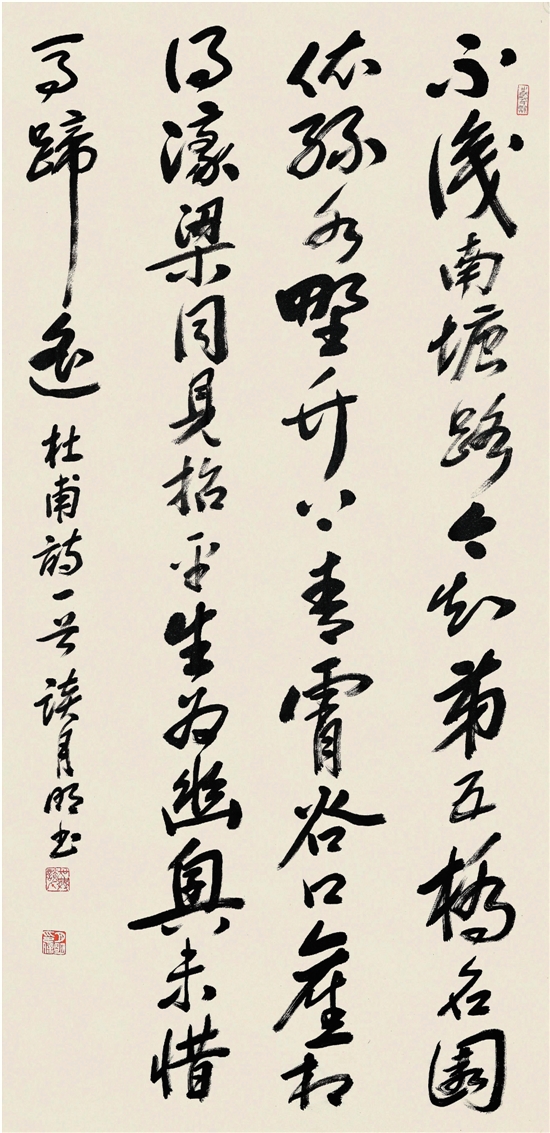 不識南塘路今知第五橋名園
依綠水野竹上青霄谷口舊相
得濠梁同見招平生為幽興未惜
馬蹄遙 杜甫詩一首 談月明書